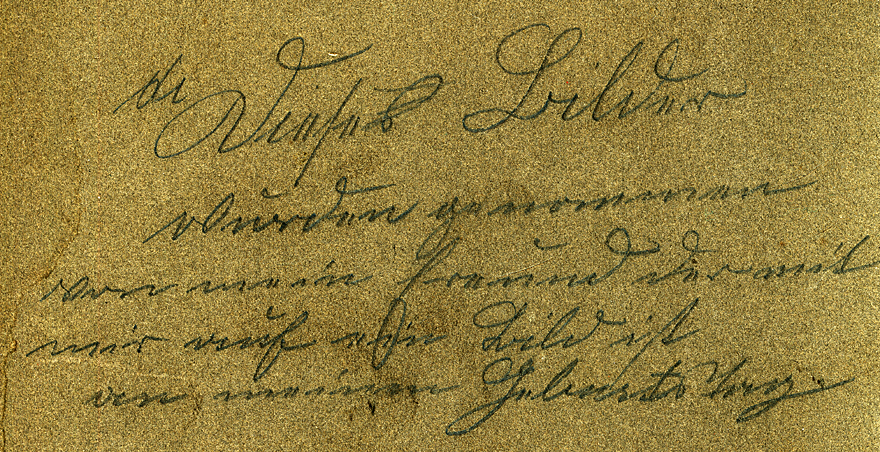 Dieses Bilder
wurden genommen
von mein Freund der mit
mir auf ein Bild ist
an meinen Geburts Tag.